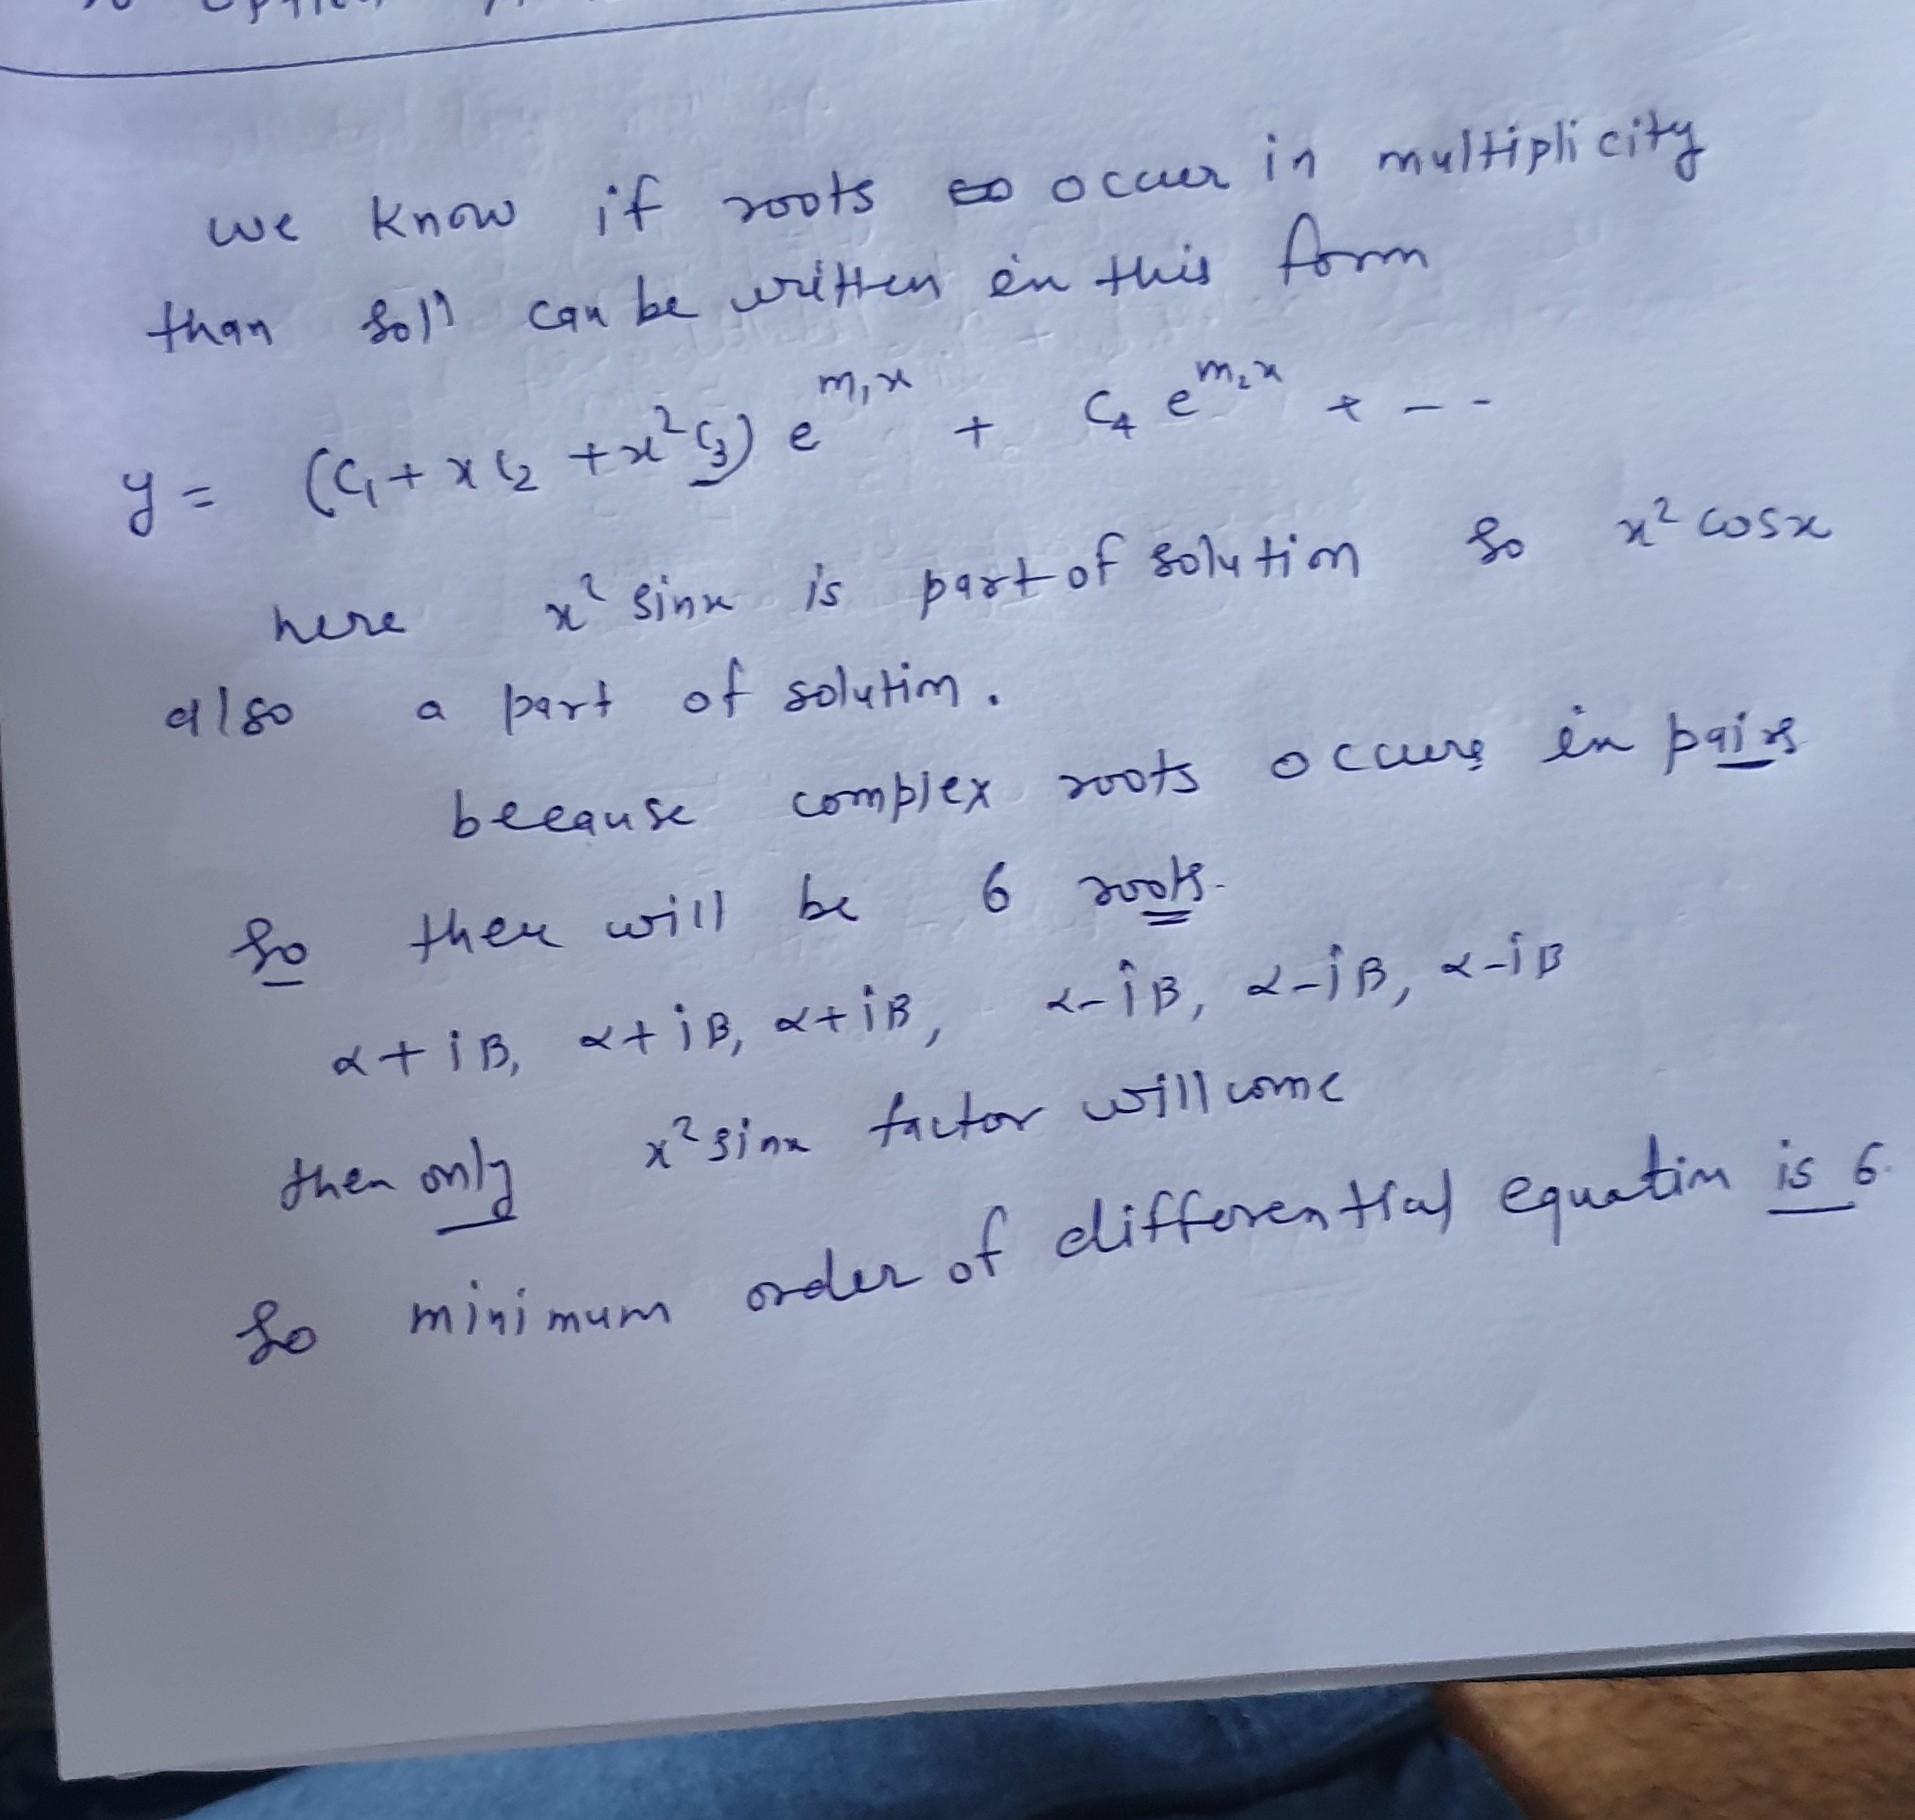 we know if roots occur in multiplicity
than sol^n can be written in this form
y = (C₁ + x C₂ + x² C₃) e^{m₁x} + C₄ e^{m₂x} + - -
here x² sinx is part of solution So x² cosx
also a part of solution.
because complex roots occurs in pairs
So there will be 6 roots.
α+iβ, α+iβ, α+iβ, α-iβ, α-iβ, α-iβ
then only x² sinx factor will come
So minimum order of differential equation is 6.